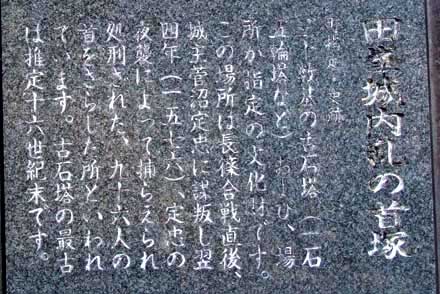 田峯城内乱の首塚
町指定・史跡
これ数基の古石塔(一石
五輪塔など)および、場
所が指定の文化財です。
この場所は長篠合戦直後、
城主菅沼定忠に謀叛し翌
四年(一五七六)、定忠の
夜襲によって捕らえられ
処刑された、九十六人の
首をさらした所といわれ
ています。古石塔の最古
は推定十六世紀末です。